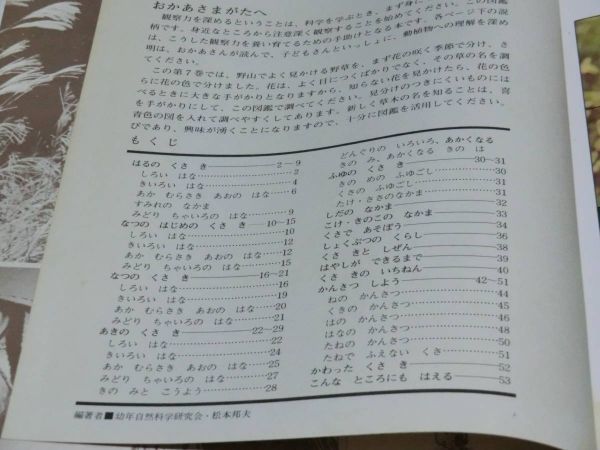 おかあさまがたへ
観察力を深めるということは、科学を学ぶとき、まず身に
柄です。身近なところから注意深く観察することを始めてください。この図鑑
は、こうした観察力を養い育てるための手助けとなる本です。各ページ下の説
明は、おかあさんが読んで、子どもさんといっしょに、動植物への理解を深め
てください。
この第7巻では、野山でよく見かける野草を、まず花の咲く季節で分け、さ
らに花の色で分けました。花は、よく目につくばかりでなく、その草の名を調
べるときに大きな手がかりとなりますから、知らない花を見かけたら、花の色
を手がかりにして、この図鑑で調べてください。見分けのつきにくいものには
青色の図を入れて調べやすくしてあります。新しく草木の名を知ることは、喜
びであり、興味が湧くことになりますので、十分に図鑑を活用してください。
もくじ
はるの くさ き 2~9
しろい はな 2
きいろい はな 4
あか むらさき あおの はな 6
すみれの なかま
みどり ちゃいろの はな 9
なつの はじめの くさ き 10~15
しろい はな 10
きいろい はな 12
あか むらさき あおの はな 12
みどり ちゃいろの はな 15
なつの くさ き 16~21
しろい はな 16
きいろい はな 19
あか むらさき あおの はな 20
みどり ちゃいろの はな 21
あきの くさ き 22~29
しろい はな 22
きいろい はな 24
あか むらさき あおの はな 25
みどり ちゃいろの はな 27
きの みと こうよう 28
どんぐりの いろいろ、あかくなる
きの み、あかくなる きの は
ふゆの くさ き 30~31
きの めの ふゆごし 30
くさの ふゆごし 31
たけ・ささのなかま 31
しだの なかま 32
こけ・きのこの なかま 33
くさで あそぼう 34
しょくぶつの くらし 36
くさ きと しぜん 38
はやしが できるまで 39
くさ きの いちねん 40
かんさつ しよう 42~51
ねの かんさつ 44
くきの かんさつ 45
はの かんさつ 46
はなの かんさつ 48
たねの かんさつ 50
たねで ふえない くさ 51
かわった くさ き 52
こんな ところにも はえる 53
編著者■幼年自然科学研究会・松本邦夫